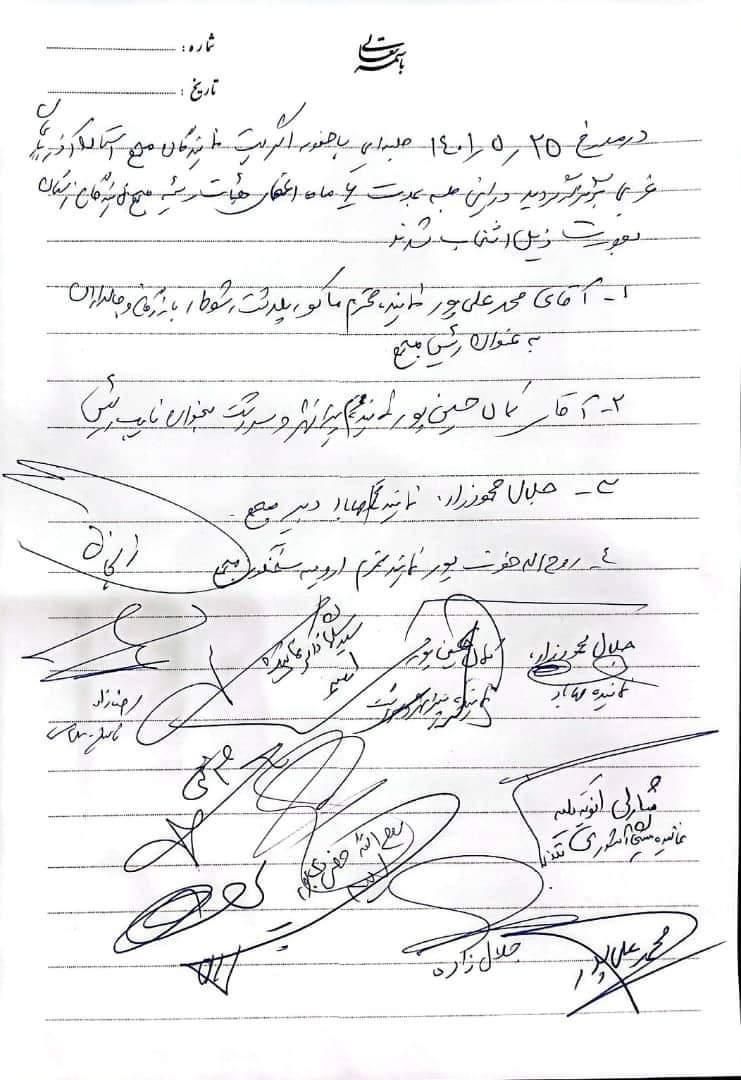 باسمه تعالی
شماره :
تاریخ :
در مورخ ۱۴۰۱/۵/۲۵ جلسه‌ای با حضور اکثریت نمایندگان مجمع استان آذربایجان
غربی برگزار گردید در این جلسه بمدت ۶ ماه اعضای هیأت رئیسه مجمع نمایندگان استان
بصورت ذیل انتخاب شدند
۱- آقای محمد علی پور نماینده محترم ماکو، پلدشت، شوط، بازرگان و چالدران
به عنوان رئیس مجمع
۲- آقای کمال حسین پور نماینده محترم پیرانشهر و سردشت بعنوان نایب رئیس
۳- جلال محمودزاده نماینده مهاباد دبیر مجمع
۴- روح اله حضرت پور نماینده محترم ارومیه سخنگوی مجمع
جلال محمودزاده
نماینده مهاباد
کمال حسین پور
نماینده پیرانشهر و سردشت
سید سلمان ذاکر نماینده
ارومیه
رضازاده
شارلی انویه تکیه
نماینده آشوری
روح الله حضرت پور
ارومیه
جلال زاده
محمد علی پور